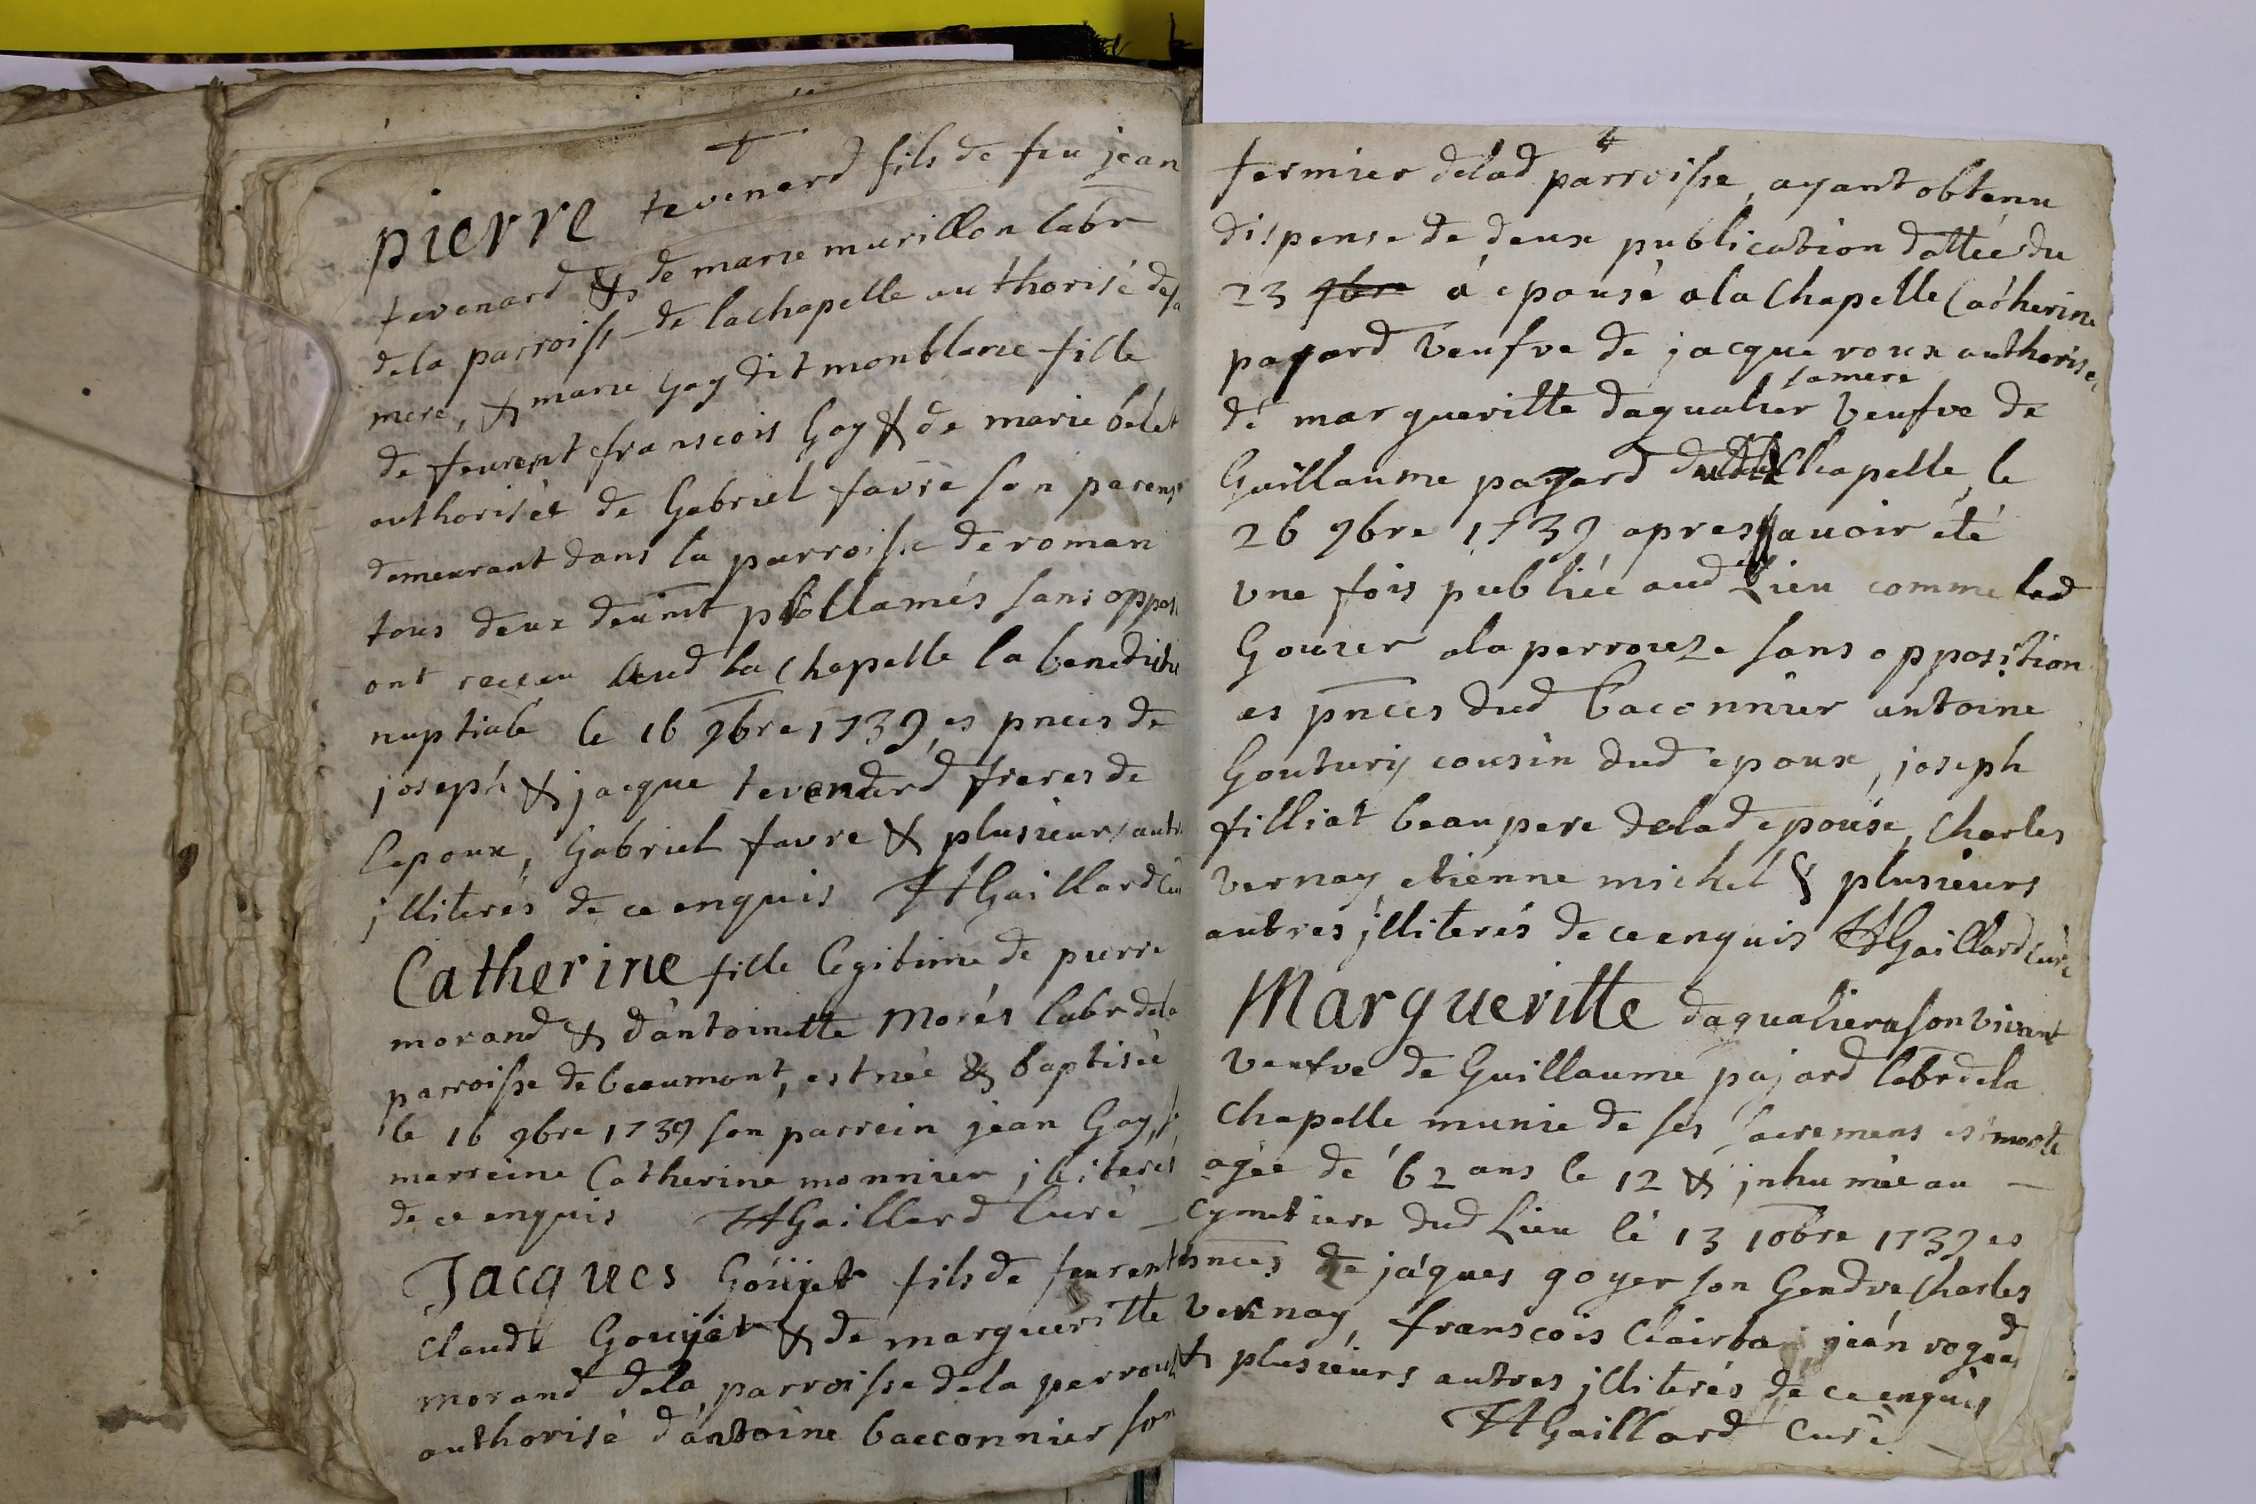 pierre tevenard fils de feu jean
tevenard & de marie murillon labr
de la parroisse de lachapelle authorisé de sa
mere, & marie Gay dit monblanc fille
de feu françois Gay & de marie belet
authorisée de Gabriel favre son parent
demeurant dans la parroisse de roman
tous deux deümt procllamés sans oppos
ont receu aud la Chapelle la benedictio
nuptiale le 16 9bre 1739, es pnces de
joseph & jacque tevenard freres de
lepoux, Gabriel favre & plusieurs autr
jlliterés de ce enquis HGaillard Cur
Catherine fille legitime de pierre
morand & d'antoinette Morés labr dela
parroisse de beaumont, est née & baptisée
le 16 9bre 1739 son parrein jean Gay, s
marreine Catherine monnier jlliterés
de ce enquis HGaillard Curé
Jacques Goüyet fils de feu
Claude Gouyet & de margueritte
morand dela parroisse dela perrouse
authorisé d'antoine bacconnier son
4
fermier delad parroisse, ayant obtenu
dispense de deux publication dattée du
23 9bre a epousé a la Chapelle Catherine
pajard veufve de jacque roux authorisée
de margueritte daqualier sa mere veufve de
Guillaume pajard Chapelle, le
26 9bre 1739 apres avoir été
vne fois publiée aud Lieu comme led
Gouier a la perrouze sans opposition
es pnces dud bacconnier antoine
Goutury cousin dud epoux, joseph
filliat beaupere delad epouse, Charles
vernay etienne michel & plusieurs
autres jlliterés de ce enquis HGaillard Curé
Margueritte daqualier a son vivant
veufve de Guillaume pajard labr dela
Chapelle munie de ses sacremens est morte
agée de 62 ans le 12 & jnhumée au
Cymetiere dud Lieu le 13 10bre 1739 es
pnces de jaques goyer son Gendre Charles
vernay, franscois Clairba jean rogad
& plusieurs autres jlliterés de ce enquis
HGaillard Curé